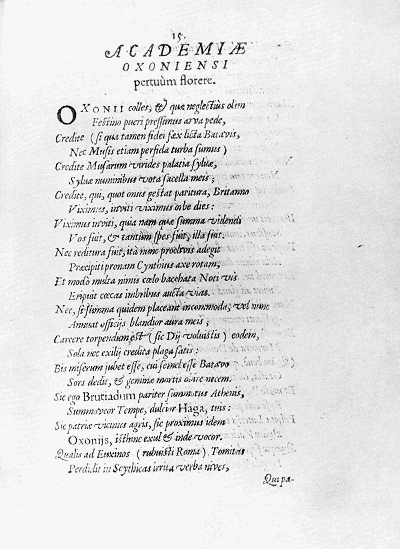 15.
ACADEMIÆ
OXONIENSI
pertuùm florere.
OXONII colles, & quæ neglectus olim
Festino pueri pressimus arva pede,
Credite (si qua tamen fidei fæx licta Batavis,
Nec Musis etiam perfida turba sumus)
Credite Musarum virides palatia sylvæ,
Sylvæ numinibus vota sacella meis;
Credite, qui, quot onus gestat paritura, Britanno
Viximus, inviti viximus orbe dies:
Viximus inviti, quia nam quæ summa videndi
Vos fuit, & tantùm spes fuit, illa fuit.
Nec reditura fuit, ità nunc proclivis adegit
Præcipiti pronam Cynthius axe rotam,
Et modò multa nimis cœlo bacchata Noti vis
Eripuit cœcas imbribus aucta vias.
Nec, si summa quidem placeant incommoda, vel nunc
Annuat officijs blandior aura meis;
Carcere torpendum est (sic Dij voluistis) eodem,
Sola nec exilij credita plaga satis:
Bis miserum jubet esse, cui semel esse Batavo
Sors dedit, & geminæ mortis obire necem.
Sic ego Brutiadum pariter summotus Athenis,
Summoveor Tempe, dulcior Haga, tuis:
Sic patriæ vicinus agris, sic proximus idem
Oxonijs, isthinc exul & inde vocor.
Qualis ad Euxinos (rubuisti Roma) Tomitas
Perdidit in Scythicas irrita verba nives,
Qui pa-